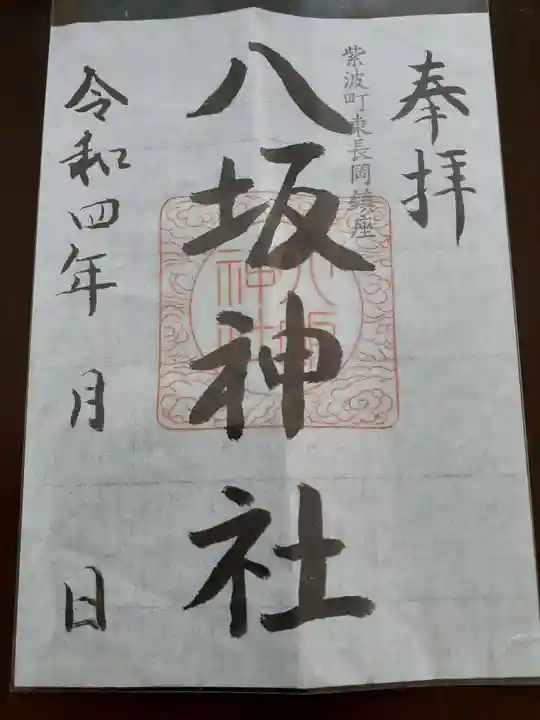 奉拝
紫波町東長岡鎮座
八坂神社
八坂
神社
令和四年 月 日